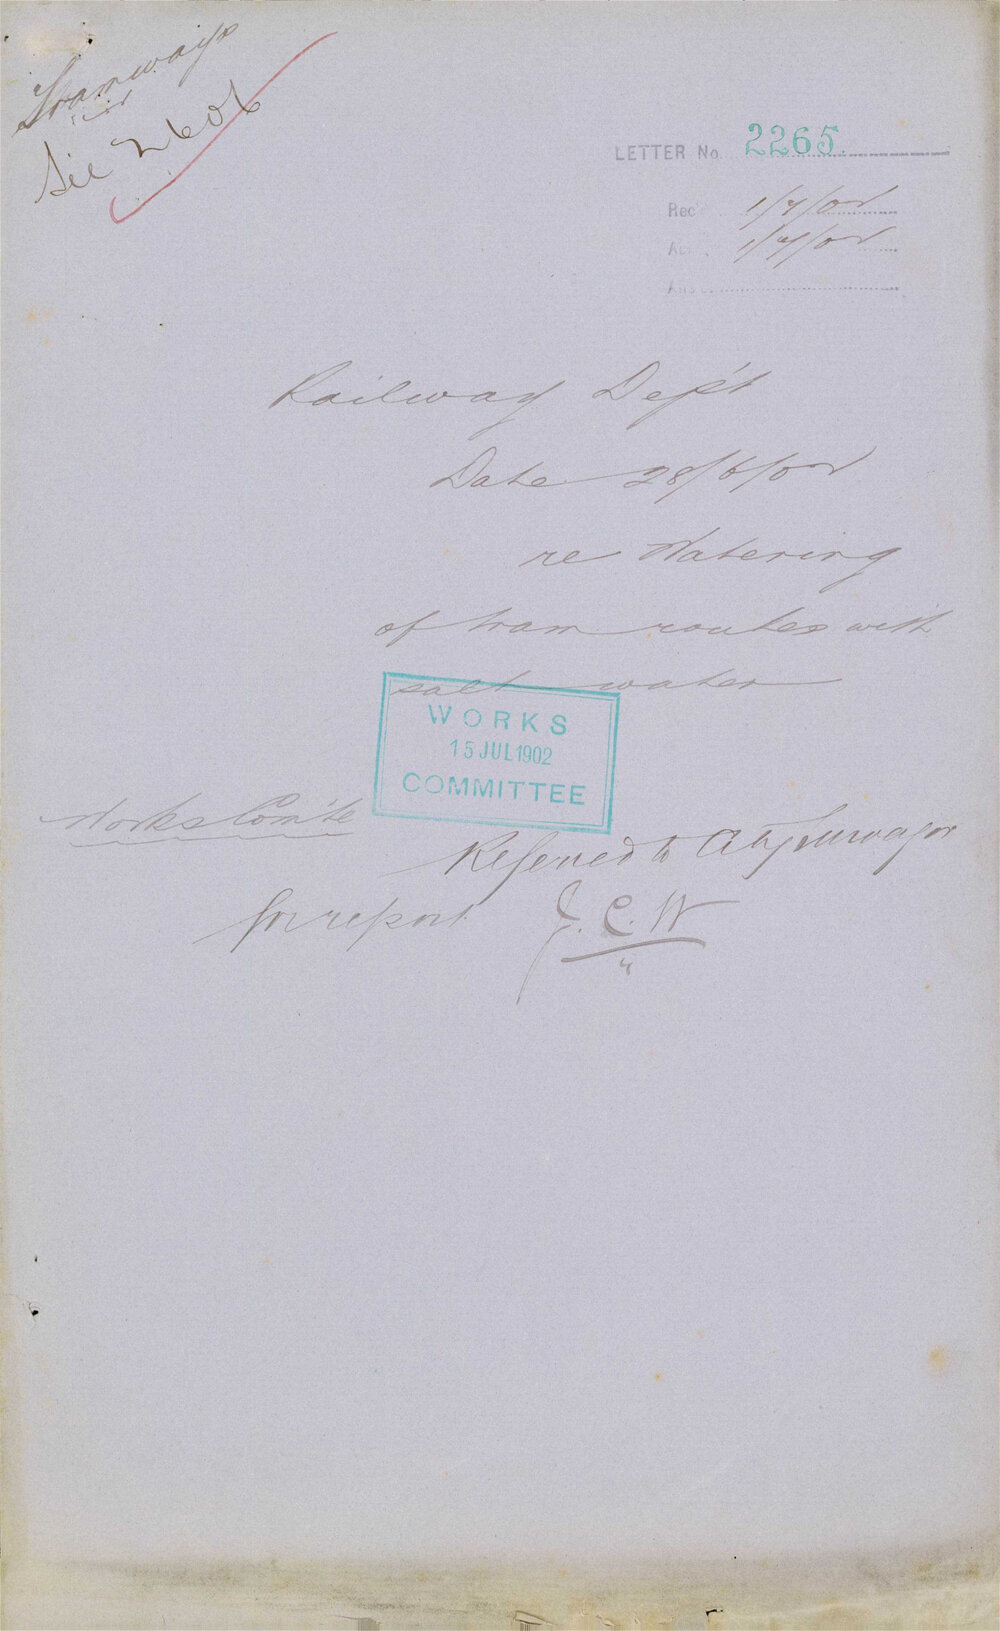 Tramways
See 2606
LETTER No. 2265.
Rec'd 1/7/02
Ack. 1/7/02
Ans.
Railway Dep't
Date 28/6/02
re Watering
of tram routes with
salt water
WORKS
15 JUL 1902
COMMITTEE
Works Com'te
Referred to City Surveyor
for report J. C. W